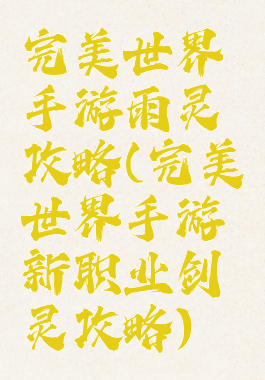 完美世界
手游雨灵
攻略(完美
世界手游
新职业剑
灵攻略)